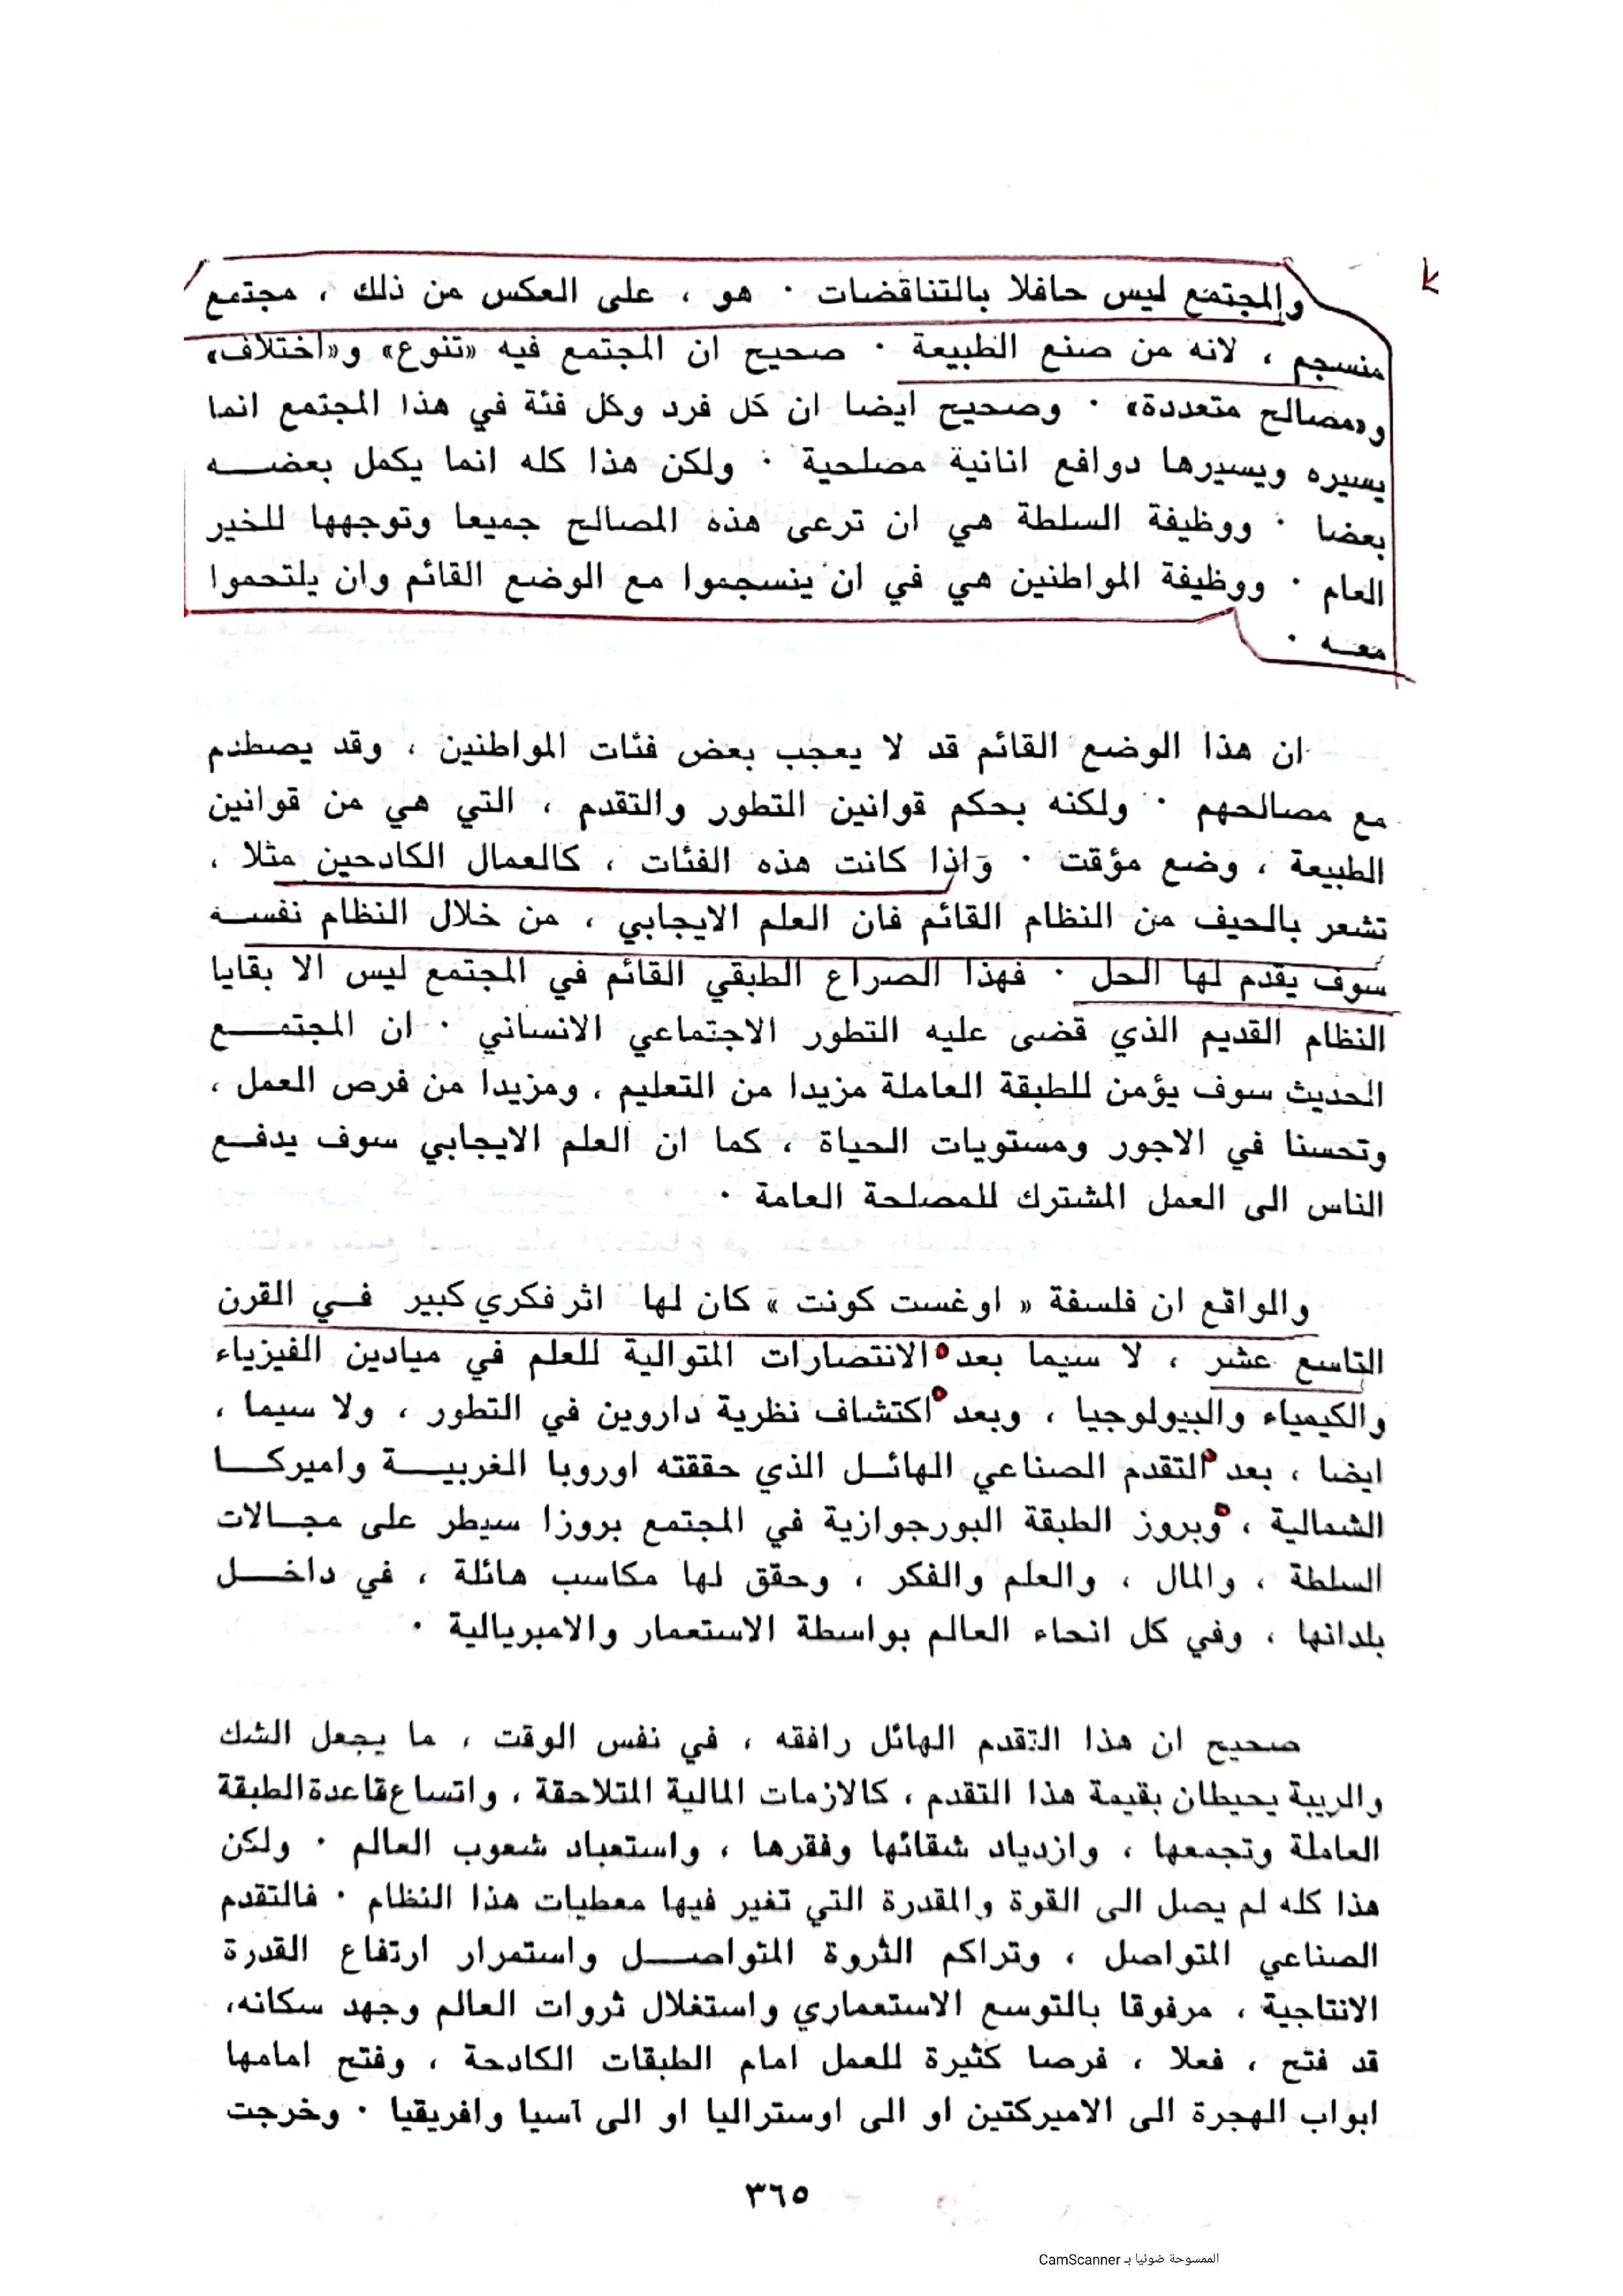 والمجتمع ليس حافلا بالتناقضات . هو ، على العكس من ذلك ، مجتمع
منسجم ، لانه من صنع الطبيعة . صحيح ان المجتمع فيه «تنوع» و«اختلاف»
و«مصالح متعددة» . وصحيح ايضا ان كل فرد وكل فئة في هذا المجتمع انما
يسيره ويسيرها دوافع انانية مصلحية . ولكن هذا كله انما يكمل بعضــه
بعضا . ووظيفة السلطة هي ان ترعى هذه المصالح جميعا وتوجهها للخير
العام . ووظيفة المواطنين هي في ان ينسجموا مع الوضع القائم وان يلتحموا
معــه .
ان هذا الوضع القائم قد لا يعجب بعض فئات المواطنين ، وقد يصطدم
مع مصالحهم . ولكنه بحكم قوانين التطور والتقدم ، التي هي من قوانين
الطبيعة ، وضع مؤقت . واذا كانت هذه الفئات ، كالعمال الكادحين مثلا ،
تشعر بالحيف من النظام القائم فان العلم الايجابي ، من خلال النظام نفســه
سوف يقدم لها الحل . فهذا الصراع الطبقي القائم في المجتمع ليس الا بقايا
النظام القديم الذي قضى عليه التطور الاجتماعي الانساني . ان المجتمــع
الحديث سوف يؤمن للطبقة العاملة مزيدا من التعليم ، ومزيدا من فرص العمل ،
وتحسنا في الاجور ومستويات الحياة ، كما ان العلم الايجابي سوف يدفــع
الناس الى العمل المشترك للمصلحة العامة .
والواقع ان فلسفة « اوغست كونت » كان لها اثر فكري كبير فــي القرن
التاسع عشر ، لا سيما بعد الانتصارات المتوالية للعلم في ميادين الفيزياء
والكيمياء والبيولوجيا ، وبعد اكتشاف نظرية داروين في التطور ، ولا سيما ،
ايضا ، بعد التقدم الصناعي الهائــل الذي حققته اوروبا الغربيــة واميركــا
الشمالية ، وبروز الطبقة البورجوازية في المجتمع بروزا سيطر على مجــالات
السلطة ، والمال ، والعلم والفكر ، وحقق لها مكاسب هائلة ، في داخــل
بلدانها ، وفي كل انحاء العالم بواسطة الاستعمار والامبريالية .
صحيح ان هذا التقدم الهائل رافقه ، في نفس الوقت ، ما يجعل الشك
والريبة يحيطان بقيمة هذا التقدم ، كالازمات المالية المتلاحقة ، واتساع قاعدة الطبقة
العاملة وتجمعها ، وازدياد شقائها وفقرها ، واستعباد شعوب العالم . ولكن
هذا كله لم يصل الى القوة والمقدرة التي تغير فيها معطيات هذا النظام . فالتقدم
الصناعي المتواصل ، وتراكم الثروة المتواصــل واستمرار ارتفاع القدرة
الانتاجية ، مرفوقا بالتوسع الاستعماري واستغلال ثروات العالم وجهد سكانه،
قد فتح ، فعلا ، فرصا كثيرة للعمل امام الطبقات الكادحة ، وفتح امامها
ابواب الهجرة الى الاميركتين او الى اوستراليا او الى آسيا وافريقيا . وخرجت
٣٦٥
الممسوحة ضوئيا بـ CamScanner